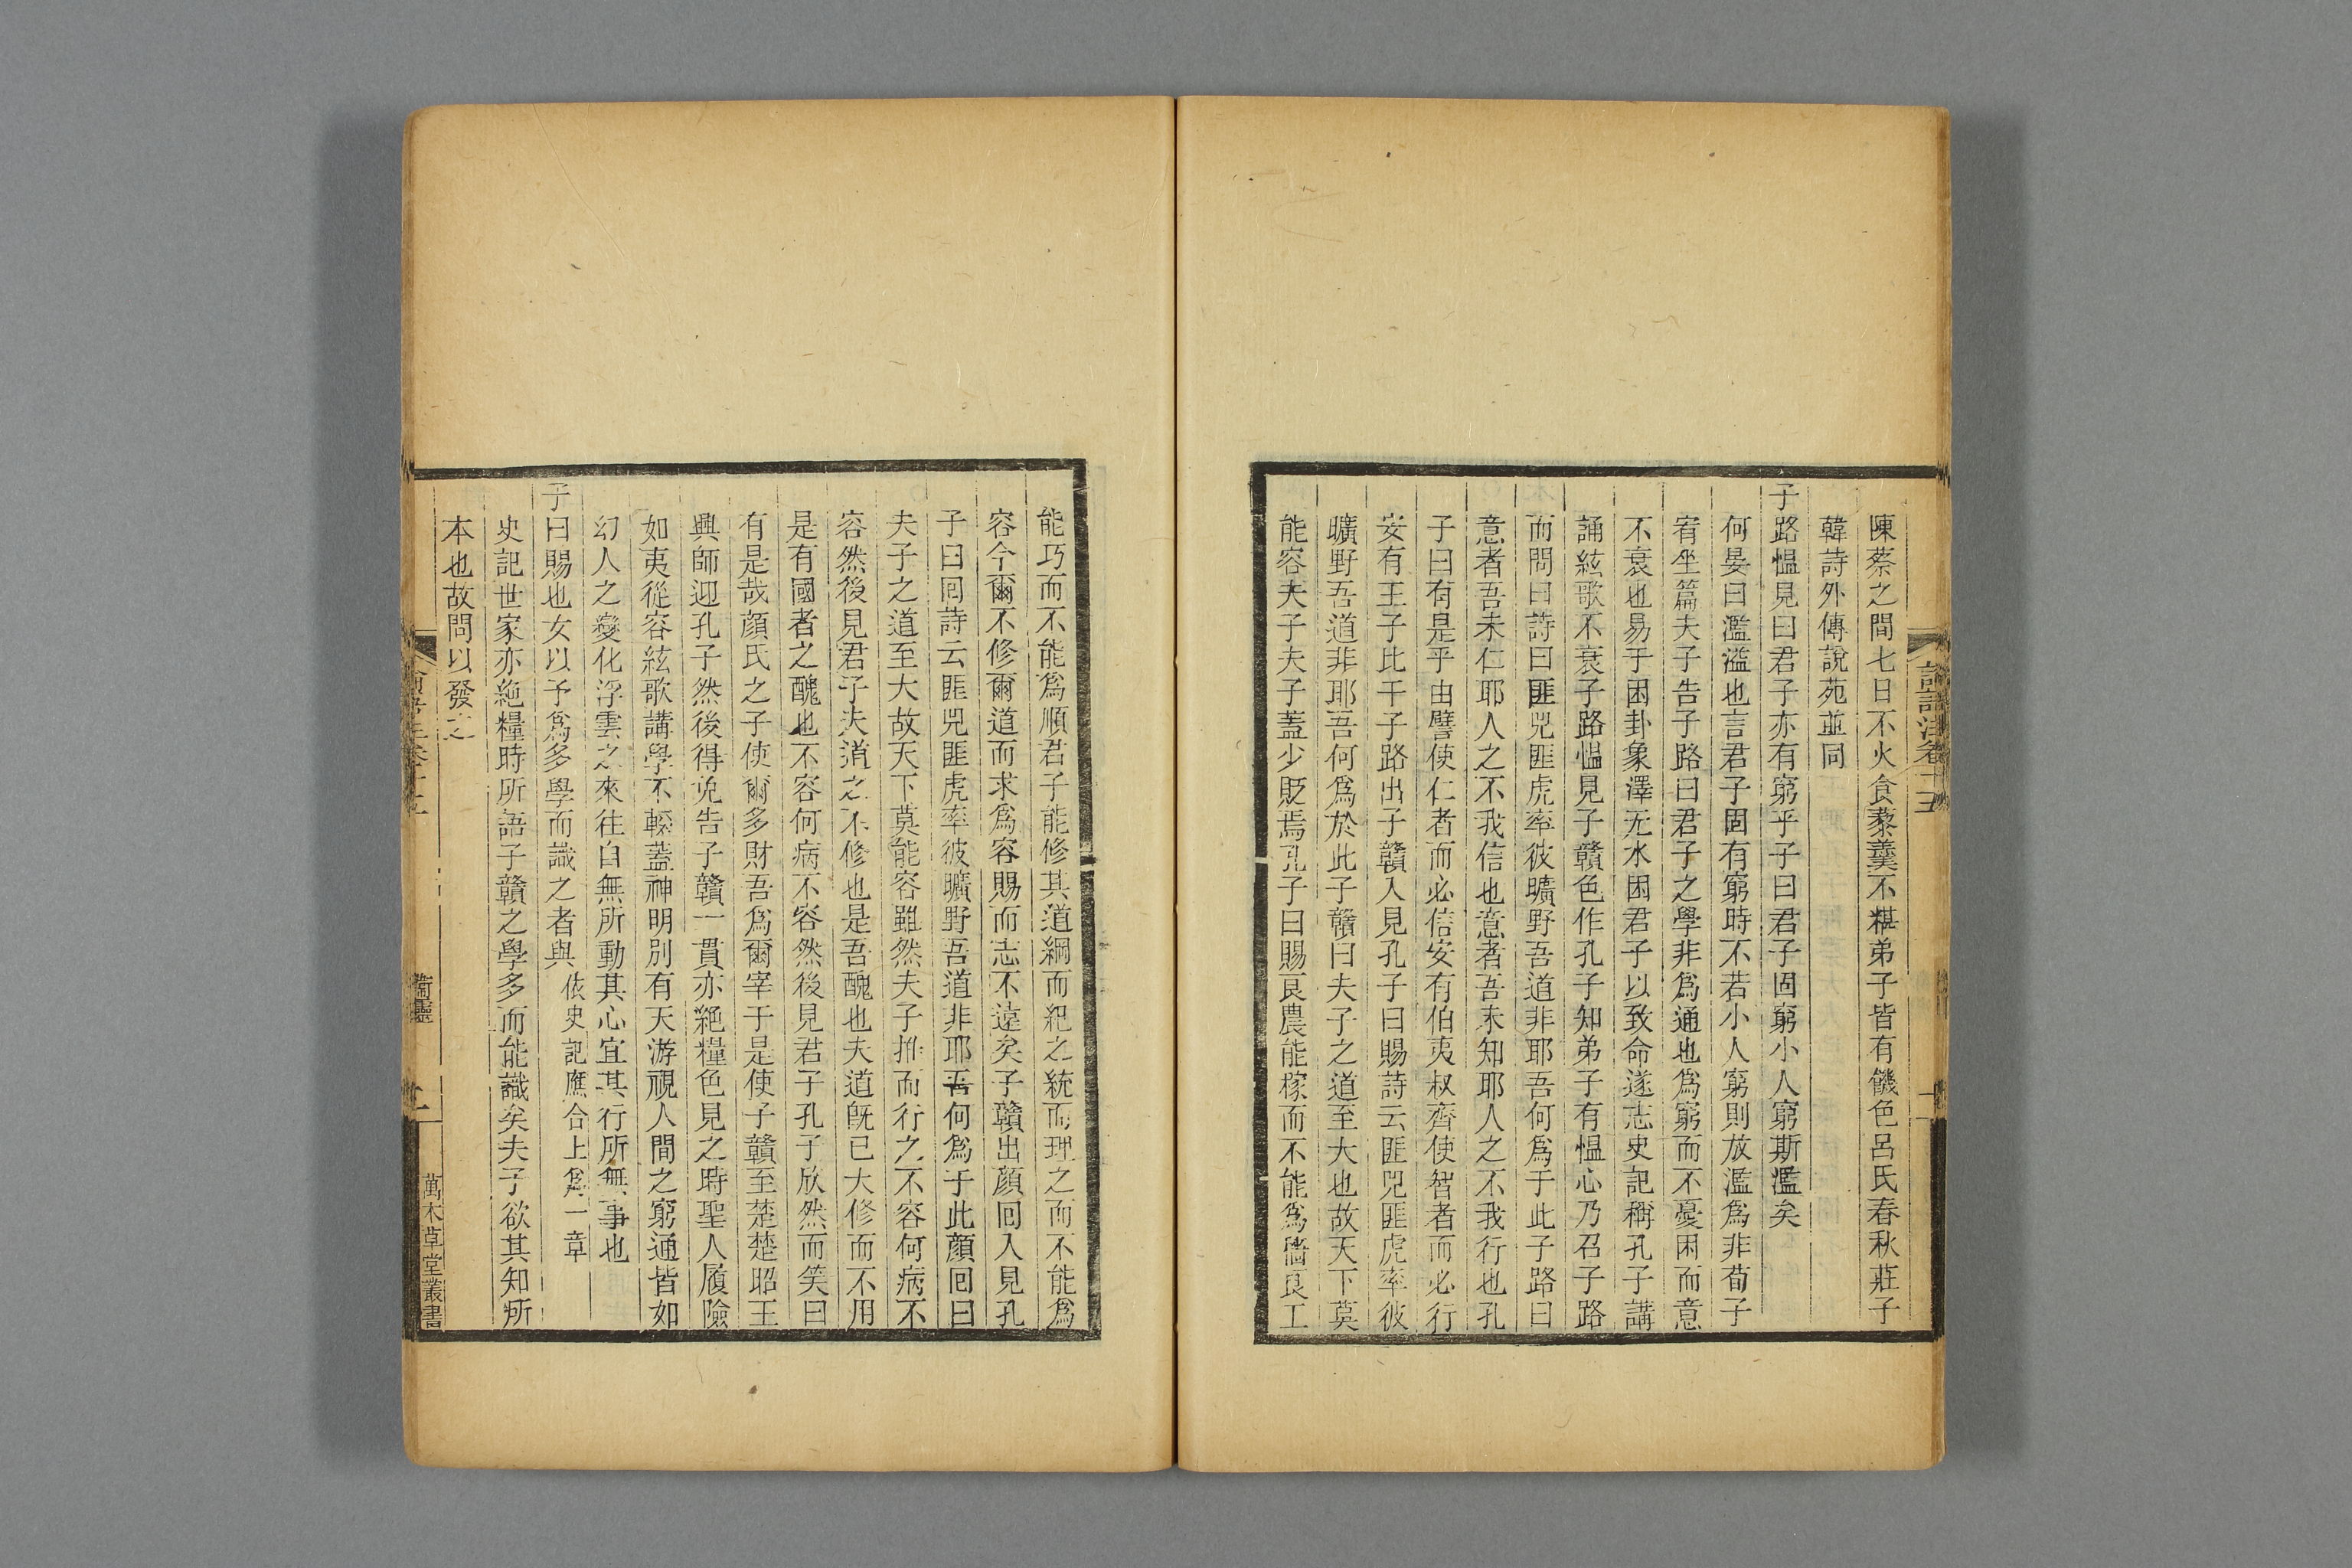 論語注卷十五
陳蔡之間七日不火食藜羹不糂弟子皆有饑色呂氏春秋莊子
韓詩外傳說苑並同
子路愠見曰君子亦有窮乎子曰君子固窮小人窮斯濫矣
何晏曰濫溢也言君子固有窮時不若小人窮則放濫爲非荀子
宥坐篇夫子告子路曰君子之學非爲通也爲窮而不憂困而意
不衰也易于困卦象澤无水困君子以致命遂志史記稱孔子講
誦絃歌不衰子路愠見子贛色作孔子知弟子有愠心乃召子路
而問曰詩曰匪兕匪虎率彼曠野吾道非耶吾何爲于此子路曰
意者吾未仁耶人之不我信也意者吾未知耶人之不我行也孔
子曰有是乎由譬使仁者而必信安有伯夷叔齊使智者而必行
安有王子比干子路出子贛入見孔子曰賜詩云匪兕匪虎率彼
曠野吾道非耶吾何爲於此子贛曰夫子之道至大也故天下莫
能容夫子夫子蓋少貶焉孔子曰賜良農能稼而不能爲穡良工
能巧而不能爲順君子能修其道綱而紀之統而理之而不能爲
容今爾不修爾道而求爲容賜而志不遠矣子贛出顔回入見孔
子曰回詩云匪兕匪虎率彼曠野吾道非耶吾何爲于此顔回曰
夫子之道至大故天下莫能容雖然夫子推而行之不容何病不
容然後見君子夫道之不修也是吾醜也夫道旣已大修而不用
是有國者之醜也不容何病不容然後見君子孔子欣然而笑曰
有是哉顔氏之子使爾多財吾爲爾宰于是使子贛至楚楚昭王
興師迎孔子然後得免告子贛一貫亦絕糧色見之時聖人履險
如夷從容絃歌講學不輟蓋神明別有天游視人間之窮通皆如
幻人之變化浮雲之來往自無所動其心宜其行所無事也
子曰賜也女以予爲多學而識之者與 依史記應合上爲一章
史記世家亦絕糧時所語子贛之學多而能識矣夫子欲其知所
本也故問以發之
衞靈
二
萬木草堂叢書